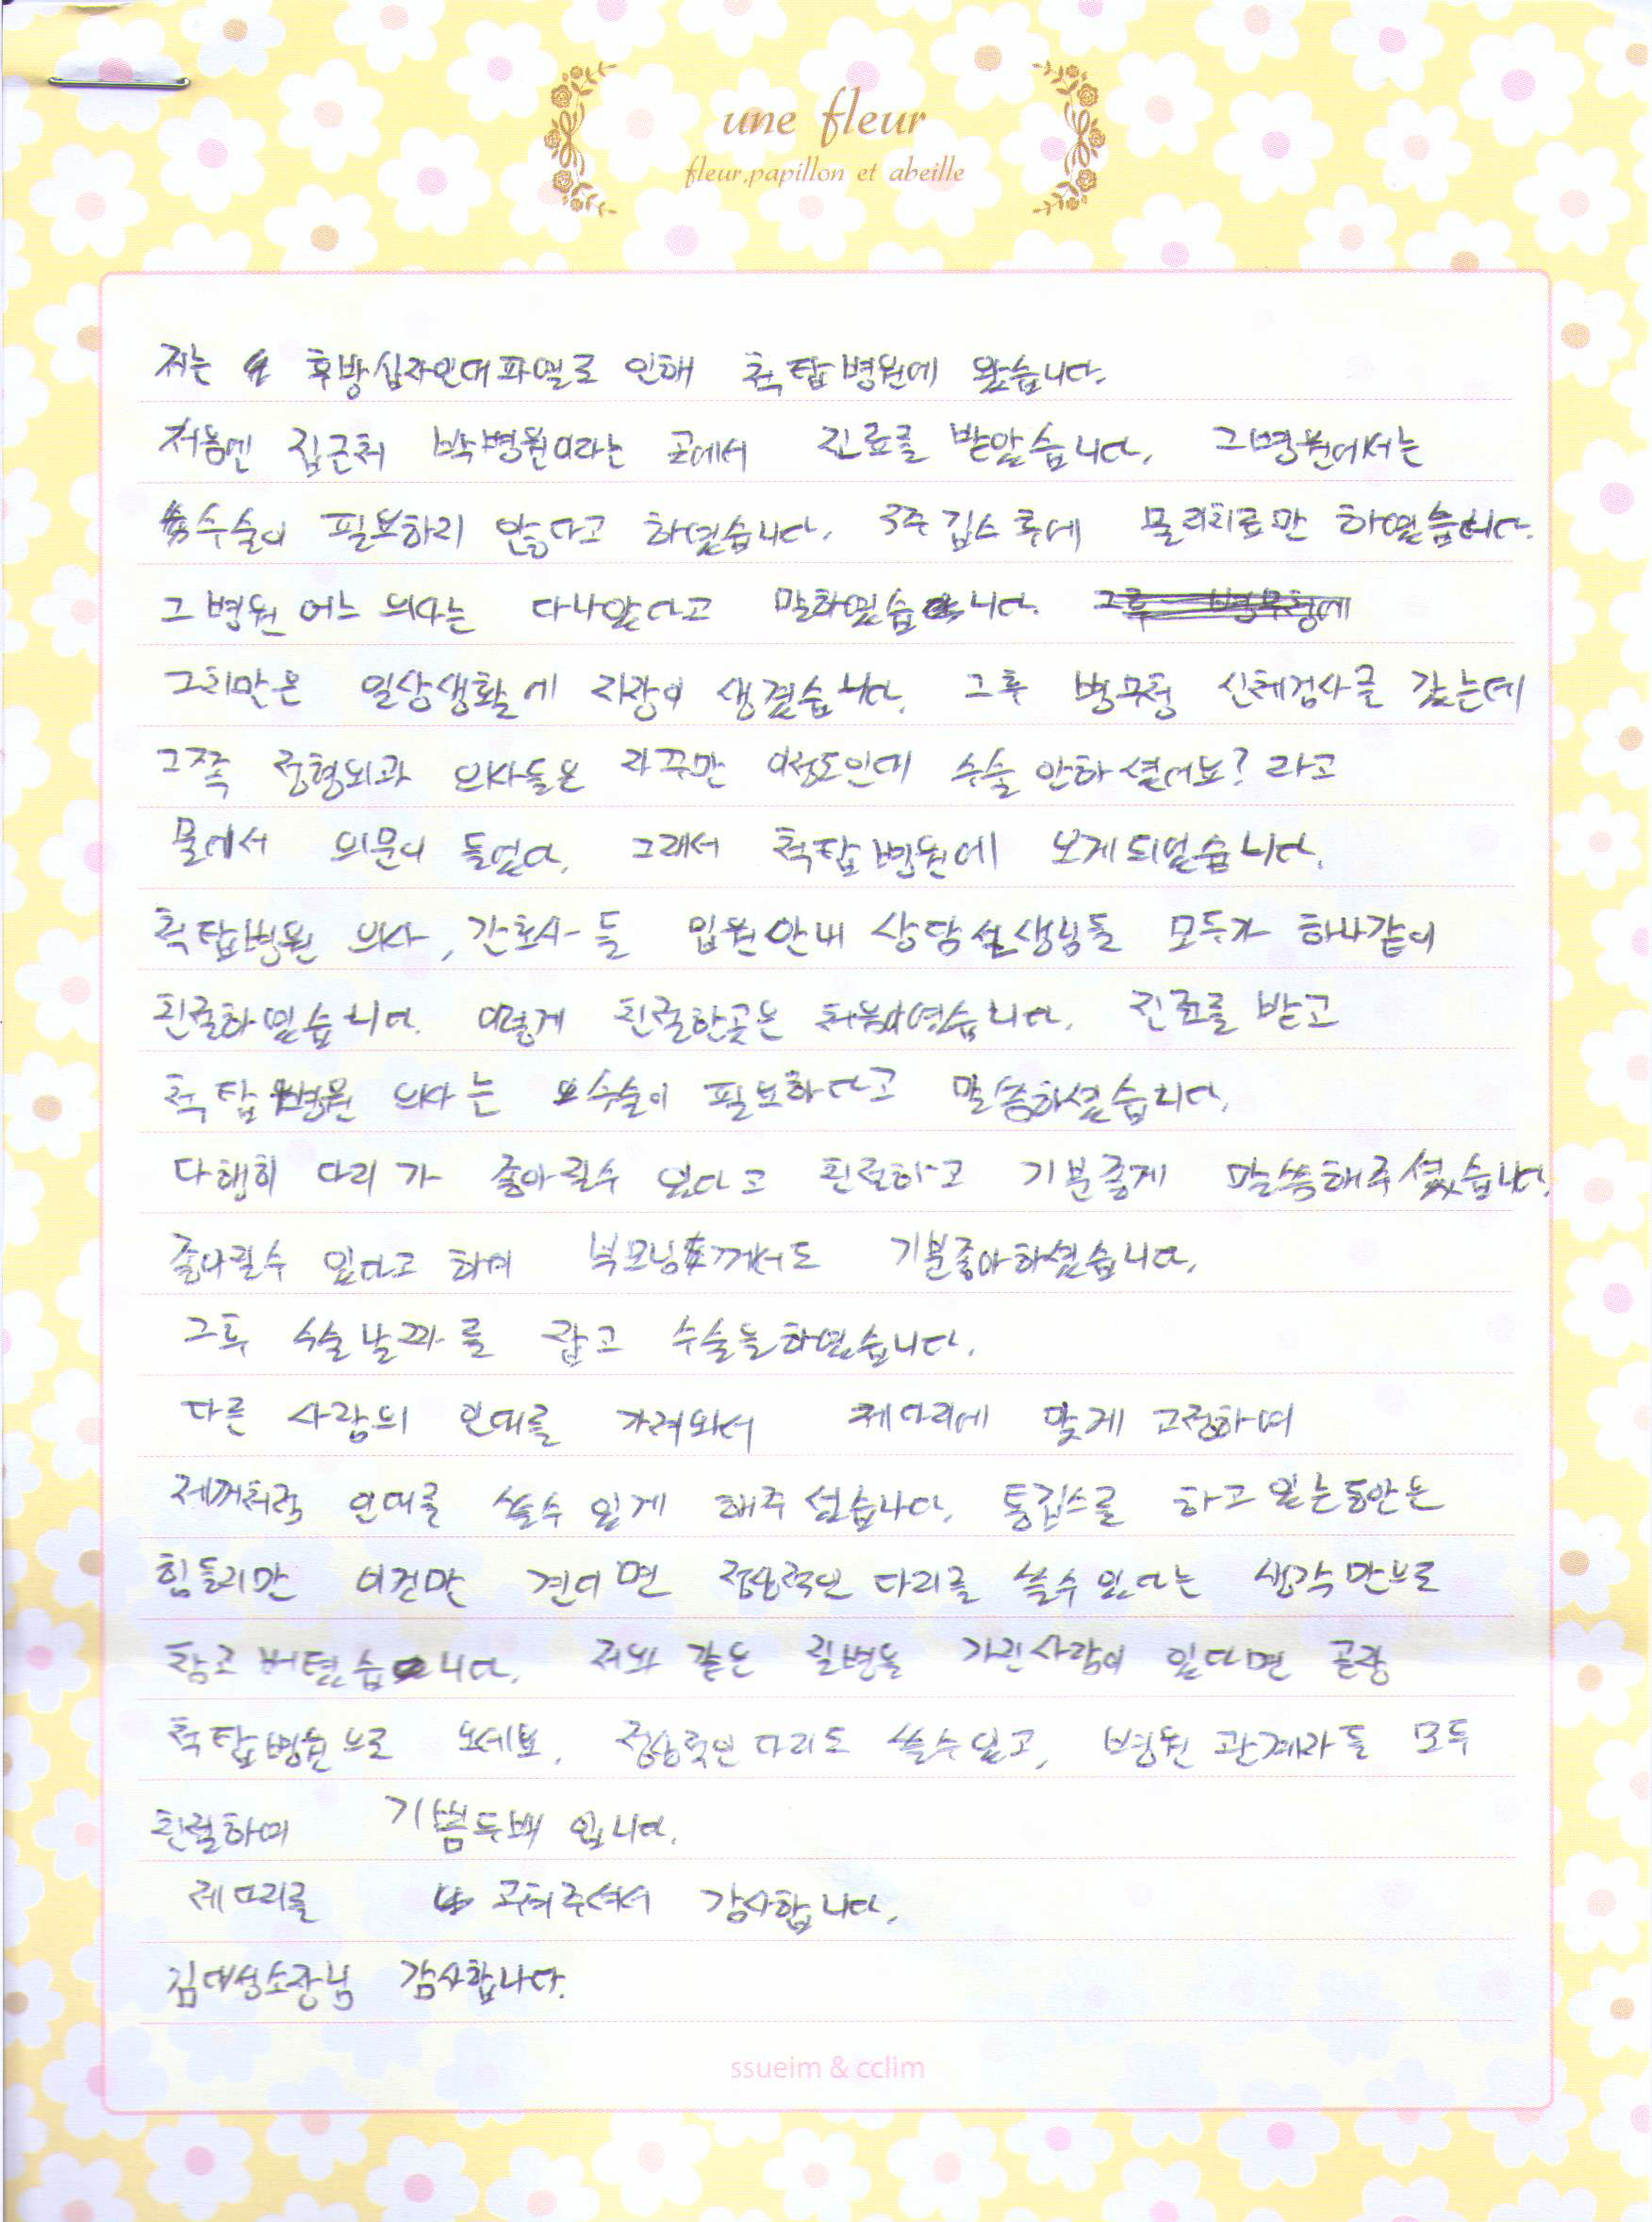 une fleur
fleur.papillon et abeille
저는 후방십자인대파열로 인해 척탑병원에 왔습니다.
처음엔 집근처 박병원이라는 곳에서 진료를 받았습니다. 그병원에서는
수술이 필요하지 않다고 하였습니다. 3주 깁스 후에 물리치료만 하였습니다.
그 병원 어느 의사는 다나았다고 말하였습니다. 그후 병무청에
그치만은 일상생활에 지장이 생겼습니다. 그후 병무청 신체검사를 갔는데
그쪽 정형외과 의사들은 자꾸만 이정도인데 수술 안하셨어요? 라고
물어서 의문이 들었다. 그래서 척탑병원에 오게되었습니다.
척탑병원 의사, 간호사들 입원안내 상담선생님들 모두가 하나같이
친절하였습니다. 이렇게 친절한곳은 처음이였습니다. 진료를 받고
척탑병원 의사는 수술이 필요하다고 말씀하셨습니다.
다행히 다리가 좋아질수 있다고 친절하고 기분좋게 말씀해주셨습니다.
좋아질수 있다고 하여 부모님께서도 기분좋아하셨습니다.
그후 수술날짜를 잡고 수술을하였습니다.
다른 사람의 인대를 가져와서 제다리에 맞게 고정하여
제꺼처럼 인대를 쓸수 있게 해주셨습니다. 통깁스를 하고있는동안은
힘들지만 이것만 견디면 정상적인 다리를 쓸수있다는 생각만으로
참고 버텼습니다. 저와 같은 질병을 가진사람이 있다면 곧장
척탑병원으로 오세요. 정상적인다리도 쓸수있고, 병원 관계자들 모두
친절하여 기쁨두배 입니다.
제다리를 고쳐주셔서 감사합니다.
김대성소장님 감사합니다.
ssueim & cclim